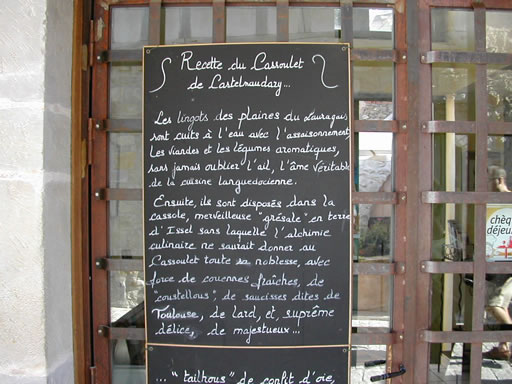 Recette du Cassoulet
de Castelnaudary...
Les lingots des plaines du Lauragais
sont cuits à l'eau avec l'assaisonnement
les viandes et les légumes aromatiques,
sans jamais oublier l'ail, l'âme véritable
de la cuisine languedocienne.
Ensuite, ils sont disposés dans la
cassole, merveilleuse "grésale" en terre
d'Issel sans laquelle l'alchimie
culinaire ne saurait donner au
Cassoulet toute sa noblesse, avec
force de couennes fraîches, de
"coustellous", de saucisses dites de
Toulouse, de lard, et, suprême
délice, de majestueux...
... "tailhous" de confit d'oie,
chèq
déjeu